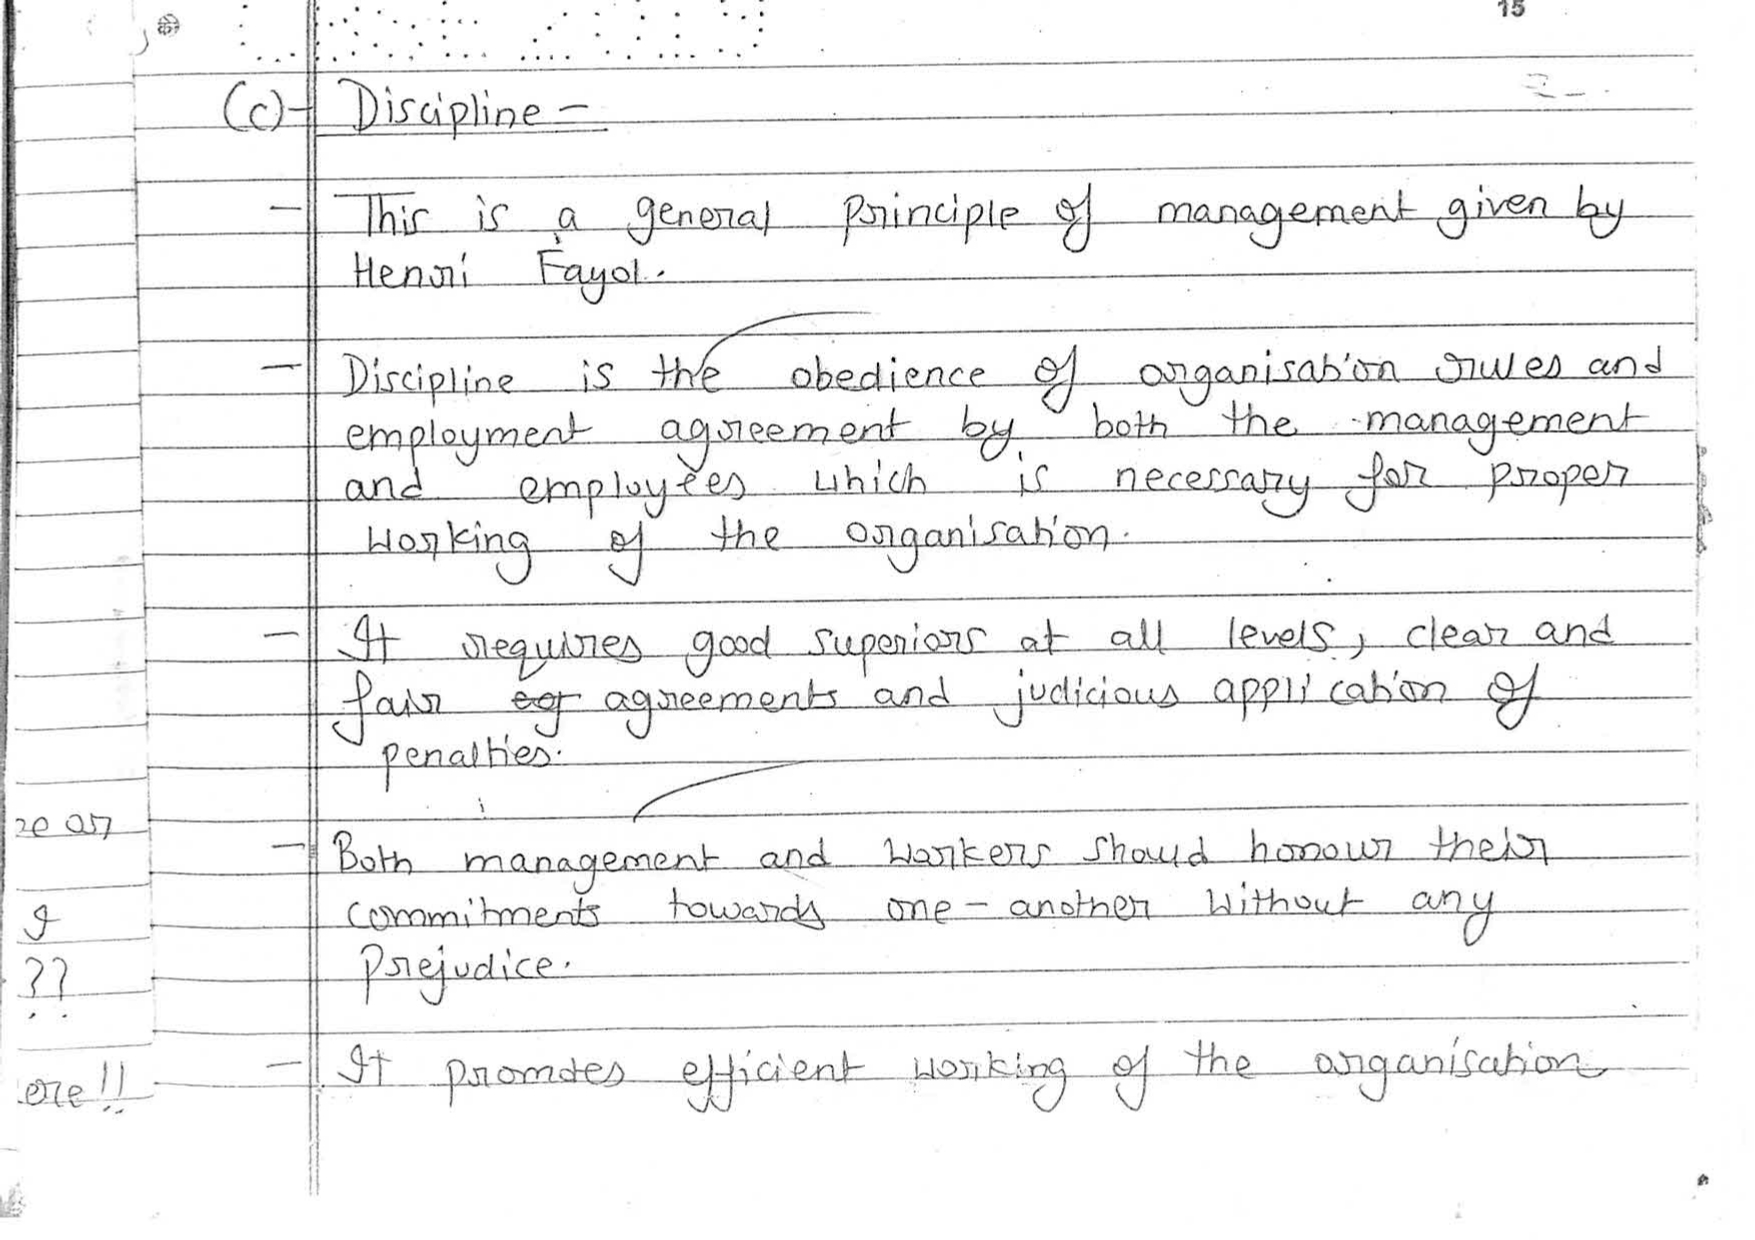 15
(c)- Discipline -
- This is a general principle of management given by
Henri Fayol.
- Discipline is the obedience of organisation rules and
employment agreement by both the management
and employees which is necessary for proper
working of the organisation.
- It requires good superiors at all levels, clear and
fair agreements and judicious application of
penalties.
- Both management and workers should honour their
commitments towards one-another without any
prejudice.
- It promotes efficient working of the organisation
??
ere!!